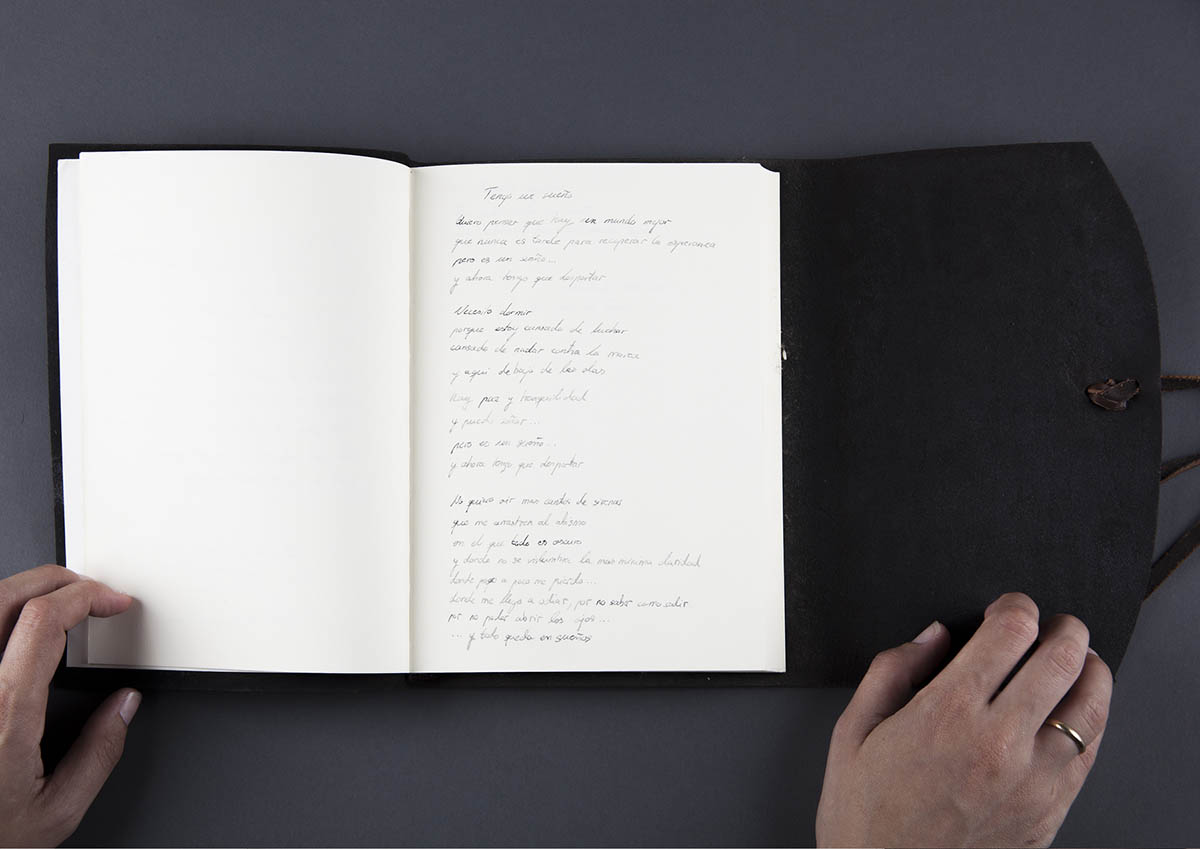 Tengo un sueño
Quiero pensar que hay un mundo mejor
que nunca es tarde para recuperar la esperanza
pero es un sueño...
y ahora tengo que despertar
Necesito dormir
porque estoy cansado de luchar
cansado de nadar contra la marea
y aquí debajo de las olas
hay paz y tranquilidad
y puedo soñar...
pero es un sueño...
y ahora tengo que despertar
No quiero oir mas cantos de sirenas
que me arrastren al abismo
en el que todo es oscuro
y donde no se vislumbra la mas minima claridad
donde poco a poco me pierdo...
donde me llego a odiar, por no saber como salir
por no poder abrir los ojos...
... y todo queda en sueños